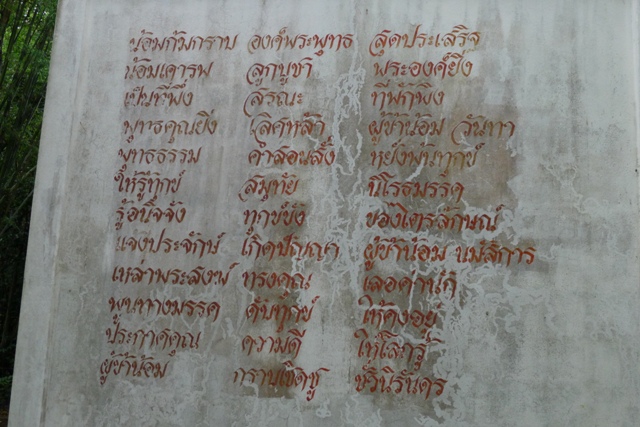 น้อมก้มกราบ องค์พระพุทธ สุดประเสริฐ
น้อมเคารพ ลูกบูชา พระองค์ยิ่ง
เป็นที่พึ่ง สรณะ ที่พักพิง
พุทธคุณยิ่ง เลิศหล้า ผู้ข้าน้อม วันทา
พุทธธรรม คำสอนสั่ง หยั่งพ้นทุกข์
ให้รู้ทุกข์ สมุทัย นิโรธมรรค
รู้อนิจจัง ทุกข์ขัง ของไตรลักษณ์
แจ้งประจักษ์ เกิดปัญญา ผู้ข้าน้อม นมัสการ
เหล่าพระสงฆ์ ทรงคุณ เลอค่านัก
พูนทางมรรค ดับทุกข์ ให้คงอยู่
ประกาศคุณ ความดี ให้โลกรู้
ผู้ข้าน้อม กราบเชิดชู ชั่วนิรันดร